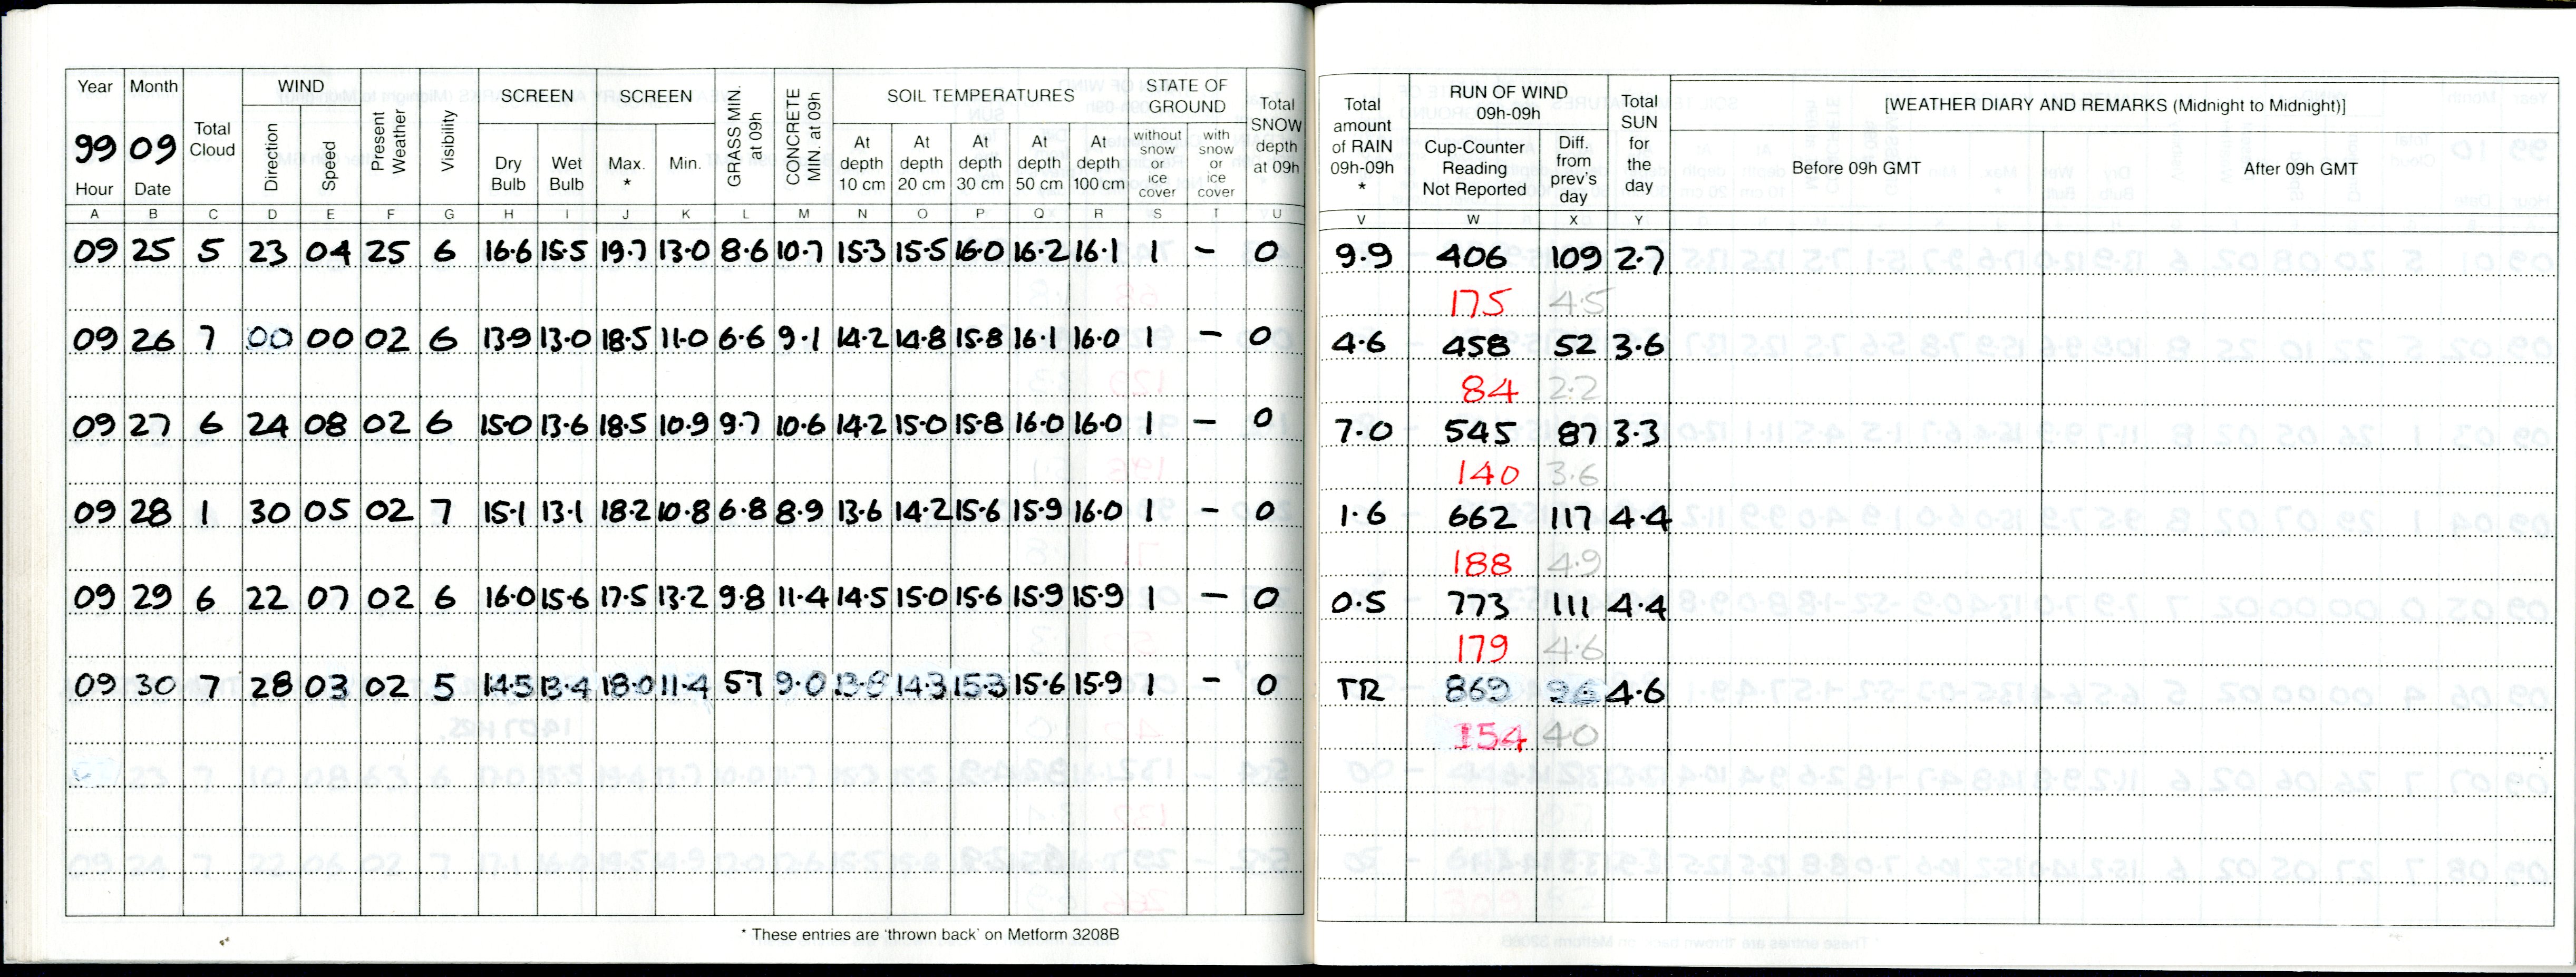 Year Month Total Cloud WIND Present Weather Visibility SCREEN SCREEN GRASS MIN. at 09h CONCRETE MIN. at 09h SOIL TEMPERATURES STATE OF GROUND Total SNOW depth at 09h Total amount of RAIN 09h-09h * RUN OF WIND 09h-09h Total SUN for the day [WEATHER DIARY AND REMARKS (Midnight to Midnight)]
99 09 Direction Speed Dry Bulb Wet Bulb Max. * Min. At depth 10 cm At depth 20 cm At depth 30 cm At depth 50 cm At depth 100 cm without snow or ice cover with snow or ice cover Cup-Counter Reading Not Reported Diff. from prev's day Before 09h GMT After 09h GMT
Hour Date
A B C D E F G H I J K L M N O P Q R S T U V W X Y
09 25 5 23 04 25 6 16.6 15.5 19.7 13.0 8.6 10.7 15.3 15.5 16.0 16.2 16.1 1 – 0 9.9 406 109 2.7
175 4.5
09 26 7 00 00 02 6 13.9 13.0 18.5 11.0 6.6 9.1 14.2 14.8 15.8 16.1 16.0 1 – 0 4.6 458 52 3.6
84 2.2
09 27 6 24 08 02 6 15.0 13.6 18.5 10.9 9.7 10.6 14.2 15.0 15.8 16.0 16.0 1 – 0 7.0 545 87 3.3
140 3.6
09 28 1 30 05 02 7 15.1 13.1 18.2 10.8 6.8 8.9 13.6 14.2 15.6 15.9 16.0 1 – 0 1.6 662 117 4.4
188 4.9
09 29 6 22 07 02 6 16.0 15.6 17.5 13.2 9.8 11.4 14.5 15.0 15.6 15.9 15.9 1 – 0 0.5 773 111 4.4
179 4.6
09 30 7 28 03 02 5 14.5 13.4 18.0 11.4 5.7 9.0 13.8 14.3 15.3 15.6 15.9 1 – 0 TR 869 96 4.6
154 4.0
* These entries are 'thrown back' on Metform 3208B